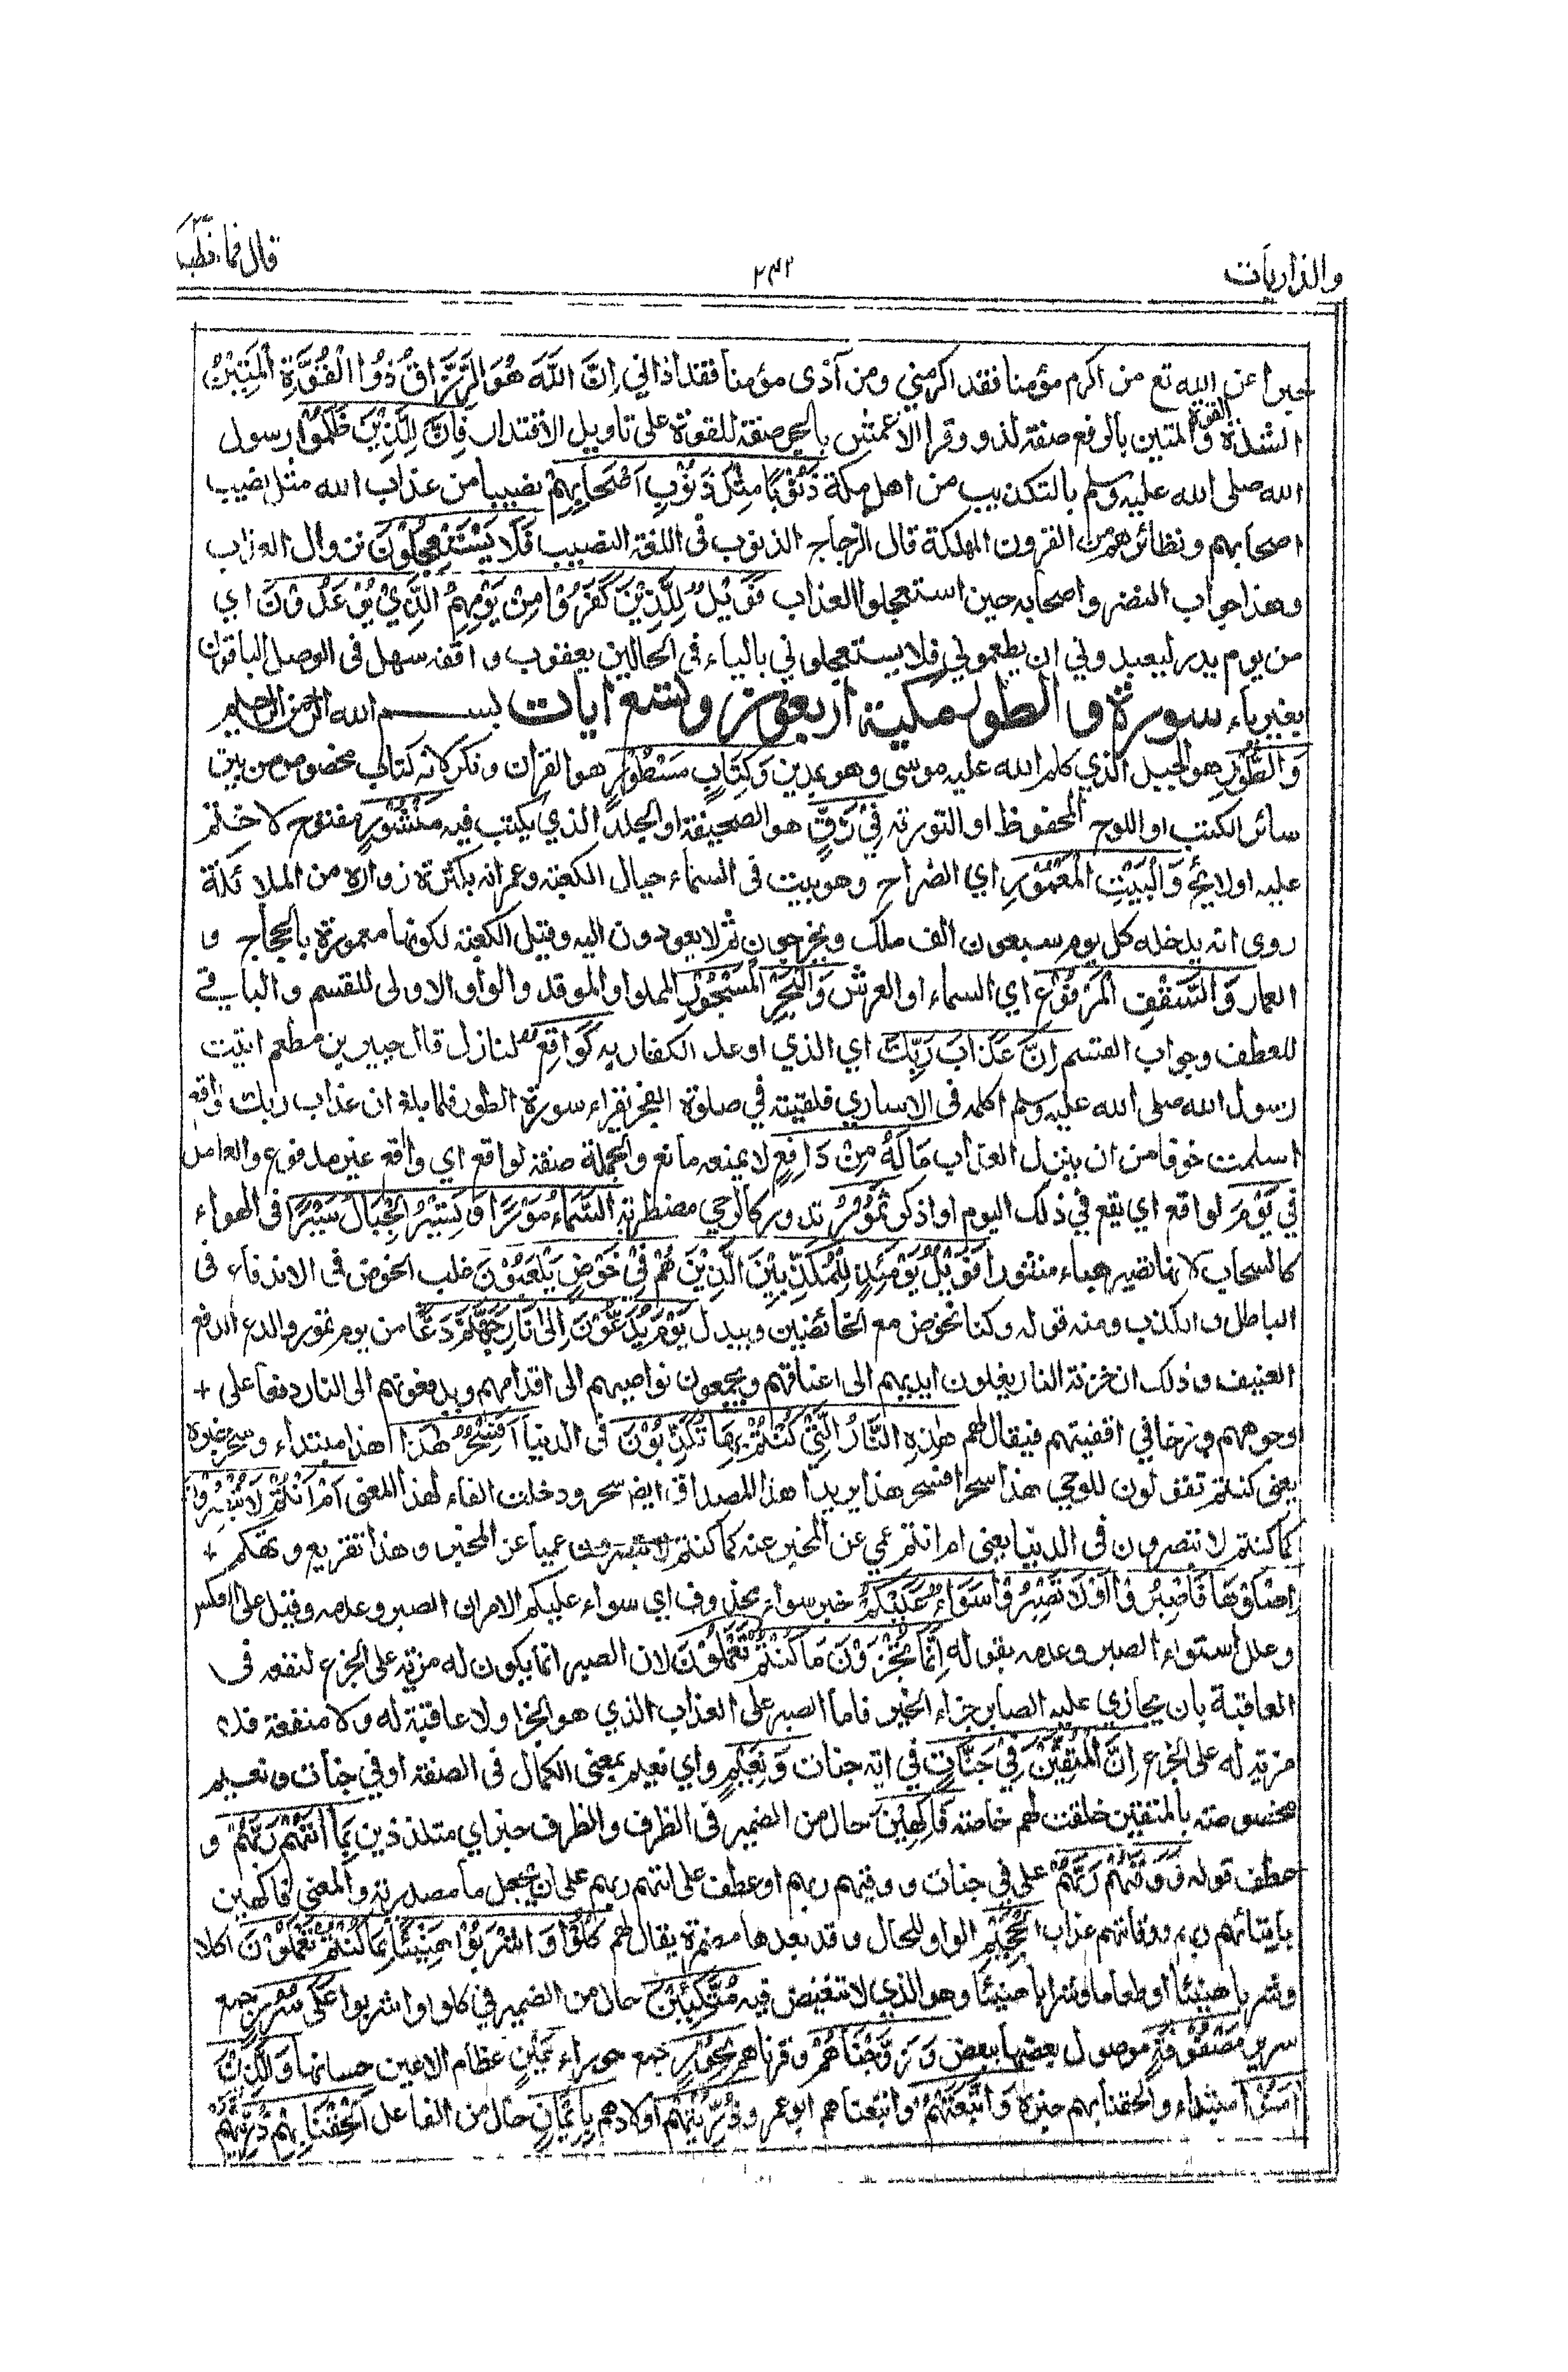 والذاريات
٢٤٢
قال فما خطبكم
خبرا عن الله تع من اكرم مؤمنا فقد اكرمني ومن آذى مؤمنا فقد اذاني اِنَّ اللّٰهَ هُوَ الرَّزَّاقُ ذُوا الْقُوَّةِ الْمَتِيْنُ
الشدة والقوة المتين بالرفع صفة لذو وقرا الاعمش بالجر صفة للقوة على تاويل الاقتدار فَاِنَّ لِلَّذِيْنَ ظَلَمُوْا رسول
الله صلى الله عليه وسلم بالتكذيب من اهل مكة ذَنُوْبًا مِثْلَ ذَنُوْبِ اَصْحَابِهِمْ نصيبا من عذاب الله مثل نصيب
اصحابهم ونظائرهم من القرون المهلكة قال الزجاج الذنوب فى اللغة النصيب فَلَا يَسْتَعْجِلُوْنَ نزوال العذاب
وهذا جواب النضر واصحابه حين استعجلوا العذاب فَوَيْلٌ لِلَّذِيْنَ كَفَرُوْا مِنْ يَوْمِهِمُ الَّذِيْ يُوْعَدُوْنَ اي
من يوم بدر ليعبدوني ان يطعموني فلا يستعجلوني بالياء فى الحالين يعقوب وافقه سهل فى الوصل الباقون
بغير ياء سورة والطور مكية اربعون وتسع ايات بسم الله الرحمن الرحيم
وَالطُّوْرِ هو الجبل الذي كلم الله عليه موسى وهو بمدين وَكِتَابٍ مَسْطُوْرٍ هو القران ونكر لانه كتاب مخصوص من بين
سائر الكتب او اللوح المحفوظ او التورته فِيْ رَقٍّ هو الصحيفة او الجلد الذي يكتب فيه مَنْشُوْرٍ مفتوح لا ختم
عليه او لائح وَالْبَيْتِ الْمَعْمُوْرِ اي الضراح وهو بيت فى السماء حيال الكعبة وعمرانه بكثرة زواره من الملائكة
روى انه يدخله كل يوم سبعون الف ملك ويخرجون ثم لا يعودون اليه وقيل الكعبة لكونها معمورة بالحجاج و
العمار وَالسَّقْفِ الْمَرْفُوْعِ اي السماء او العرش وَالْبَحْرِ الْمَسْجُوْرِ المملو او الموقد والواو الاولى للقسم والباقي
للعطف وجواب القسم اِنَّ عَذَابَ رَبِّكَ اي الذي اوعد الكفار به لَوَاقِعٌ لنازل قال جبير بن مطعم اتيت
رسول الله صلى الله عليه وسلم اكلمه فى الاسارى فلقيته في صلوة الفجر يقراء سورة الطور فلما بلغ ان عذاب ربك لواقع
اسلمت خوفا من ان ينزل العذاب مَا لَهُ مِنْ دَافِعٍ لا يمنعه مانع والجملة صفة لواقع اي واقع غير مدفوع والعامل
في يَوْمَ لواقع اي يقع في ذلك اليوم او اذكر تَمُوْرُ تدور كالرحي مضطربة السَّمَاءُ مَوْرًا وَتَسِيْرُ الْجِبَالُ سَيْرًا فى الهواء
كالسحاب لانها تصير هباء منثورا فَوَيْلٌ يَوْمَئِذٍ لِلْمُكَذِّبِيْنَ الَّذِيْنَ هُمْ فِيْ خَوْضٍ يَلْعَبُوْنَ غلب الخوض فى الاندفاء فى
الباطل والكذب ومنه قوله وكنا نخوض مع الخائضين ويبدل يَوْمَ يُدَعُّوْنَ اِلٰى نَارِ جَهَنَّمَ دَعًّا من يوم تمور والدع الدفع
العنيف وذلك ان خزنة النار يغلون ايديهم الى اعناقهم ويجمعون نواصيهم الى اقدامهم ويدفعونهم الى النار دفعا على +
وجوههم وزخا في اقفيتهم فيقال لهم هٰذِهِ النَّارُ الَّتِيْ كُنْتُمْ بِهَا تُكَذِّبُوْنَ فى الدنيا اَفَسِحْرٌ هٰذَا هذا مبتداء وسحر خبره
يعنى كنتم تقولون للوحي هذا سحر افسحر هذا يريد اهذا المصداق ايض سحر ودخلت الفاء لهذا المعنى اَمْ اَنْتُمْ لَا تُبْصِرُوْنَ
كما كنتم لا تبصرون فى الدنيا يعنى ام انتم عمي عن المخبر عنه كما كنتم لا تبصرون عميا عن الخبر وهذا تقريع وتهكم +
اِصْلَوْهَا فَاصْبِرُوْا اَوْ لَا تَصْبِرُوْا سَوَاءٌ عَلَيْكُمْ خبر سواء محذوف اي سواء عليكم الامران الصبر وعدمه وقيل على العكس
وعلل استواء الصبر وعدمه بقوله اِنَّمَا تُجْزَوْنَ مَا كُنْتُمْ تَعْمَلُوْنَ لان الصبر انما يكون له مزية على الجزع لنفعه فى
العاقبة بان يجازى عليه الصابر جزاء الخير فاما الصبر على العذاب الذي هو الجزا ولا عاقبة له ولا منفعة فلا
مزية له على الجزع اِنَّ الْمُتَّقِيْنَ فِيْ جَنَّاتٍ في اية جنات وَنَعِيْمٍ واي نعيم بمعنى الكمال فى الصفة او في جنات ونعيم
مخصوصة بالمتقين خلقت لهم خاصة فَاكِهِيْنَ حال من الضمير فى الظرف والظرف خبر اي متلذذين بِمَا اٰتٰهُمْ رَبُّهُمْ و
عطف قوله وَوَقٰهُمْ رَبُّهُمْ على في جنات ووقيهم ربهم او عطف على اتهم ربهم على ان يجعل ما مصدرية والمعنى فاكهين
بايتائهم ربهم ووقايتهم عذاب الْجَحِيْمِ الواو للحال وقد بعدها مضمرة يقال لهم كُلُوْا وَاشْرَبُوْا هَنِيْئًا بِمَا كُنْتُمْ تَعْمَلُوْنَ اكلا
وشربا هنيئا او طعاما وشرابا هنيئا وهو الذي لا تنغيض فيه مُتَّكِئِيْنَ حال من الضمير في كلوا واشربوا عَلٰى سُرُرٍ جمع
سرير مَصْفُوْفَةٍ موصول بعضها ببعض وَزَوَّجْنَاهُمْ وقرناهم بِحُوْرٍ جمع حوراء عِيْنٍ عظام الاعين حسانها وَالَّذِيْنَ
اٰمَنُوْا مبتداء والحقنا بهم خبره وَاتَّبَعَتْهُمْ واتبعناهم ابو عمرو ذُرِّيَّتُهُمْ اولادهم بِاِيْمَانٍ حال من الفاعل اَلْحَقْنَا بِهِمْ ذُرِّيَّتَهُمْ